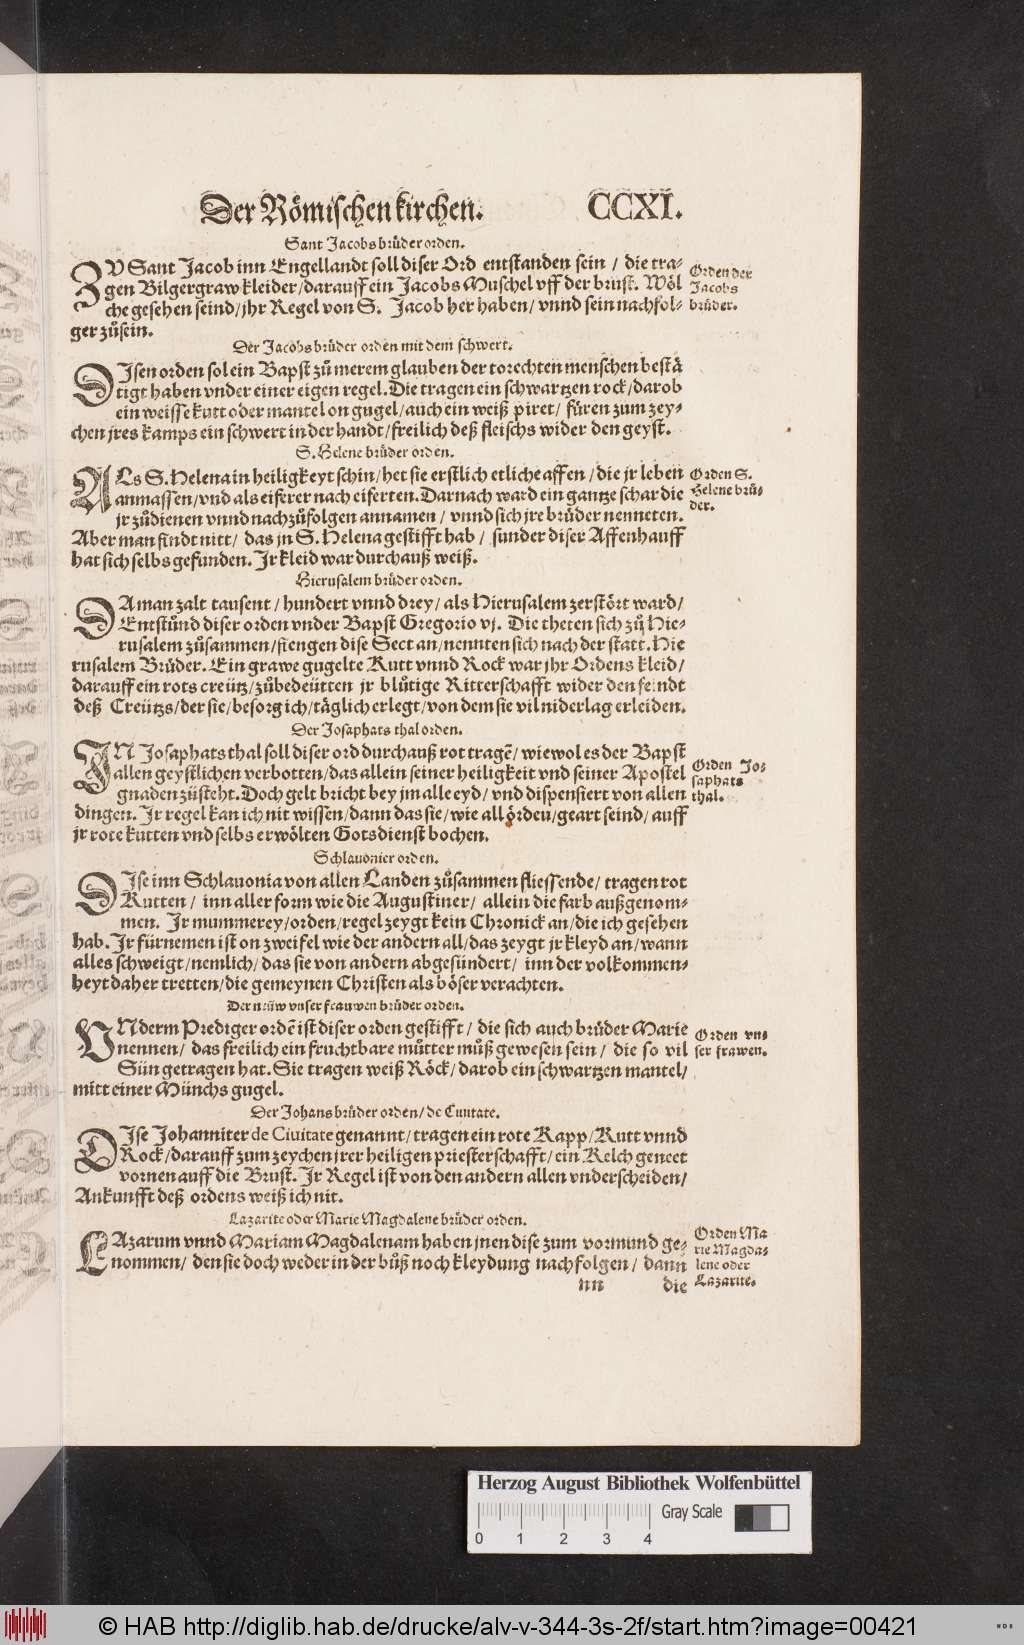 Der Römischen kirchen. CCXI.
Sant Jacobs brůder orden.
ZV Sant Jacob inn Engellandt soll diser Ord entstanden sein / die tra-
gen Bilgergraw kleider / darauff ein Jacobs Muschel vff der brust. Wöl
che gesehen seind / jhr Regel von S. Jacob her haben / vnnd sein nachfol-
ger zůsein.
Orden der
Jacobs
brůder.
Der Jacobs brůder orden mit dem schwert.
DJsen orden sol ein Bapst zů merem glauben der torechten menschen bestä
tigt haben vnder einer eigen regel. Die tragen ein schwartzen rock / darob
ein weisse kutt oder mantel on gugel / auch ein weiß piret / füren zum zey-
chen jres kamps ein schwert in der handt / freilich deß fleischs wider den geyst.
S. Helene brůder orden.
ALs S. Helena in heiligkeyt schin / het sie erstlich etliche affen / die jr leben
anmassen / vnd als eiferer nach eiferten. Darnach ward ein gantze schar die
jr zůdienen vnnd nachzůfolgen annamen / vnnd sich jre brůder nenneten.
Aber man findt nitt / das jn S. Helena gestifft hab / sunder diser Affenhauff
hat sich selbs gefunden. Jr kleid war durchauß weiß.
Orden S.
Helene brů-
der.
Hierusalem brůder orden.
DA man zalt tausent / hundert vnnd drey / als Hierusalem zerstört ward /
Entstůnd diser orden vnder Bapst Gregorio vj. Die theten sich zů Hie-
rusalem zůsammen / fiengen dise Sect an / nennten sich nach der statt. Hie
rusalem Brůder. Ein grawe gugelte Kutt vnnd Rock war jhr Ordens kleid /
darauff ein rots creütz / zůbedeütten jr blůtige Ritterschafft wider den feindt
deß Creützs / der sie / besorg ich / täglich erlegt / von dem sie vil niderlag erleiden.
Der Josaphats thal orden.
JN Josaphats thal soll diser ord durchauß rot tragē / wiewol es der Bapst
allen geystlichen verbotten / das allein seiner heiligkeit vnd seiner Apostel
gnaden zůsteht. Doch gelt bricht bey jm alle eyd / vnd dispensiert von allen
dingen. Jr regel kan ich nit wissen / dann das sie / wie all örden / geart seind / auff
jr rote kutten vnd selbs erwölten Gotsdienst bochen.
Orden Jo-
saphats
thal.
Schlauonier orden.
DJse inn Schlauonia von allen Landen zůsammen fliessende / tragen rot
Kutten / inn aller form wie die Augustiner / allein die farb außgenom-
men. Jr mummerey / orden / regel zeygt kein Chronick an / die ich gesehen
hab. Jr fürnemen ist on zweifel wie der andern all / das zeygt jr kleyd an / wann
alles schweigt / nemlich / das sie von andern abgesündert / inn der volkommen-
heyt daher tretten / die gemeynen Christen als böser verachten.
Der nëuw vnser frauwen brůder orden.
VNderm Prediger ordē ist diser orden gestifft / die sich auch brůder Marie
nennen / das freilich ein fruchtbare můtter můß gewesen sein / die so vil
Sün getragen hat. Sie tragen weiß Röck / darob ein schwartzen mantel /
mitt einer Münchs gugel.
Orden vn-
ser frawen.
Der Johans brůder orden / de Ciuitate.
DJse Johanniter de Ciuitate genannt / tragen ein rote Kapp / Kutt vnnd
Rock / darauff zum zeychen jrer heiligen priesterschafft / ein Kelch geneet
vornen auff die Brust. Jr Regel ist von den andern allen vnderscheiden /
Ankunfft deß ordens weiß ich nit.
Lazarite oder Marie Magdalene brůder orden.
LAzarum vnnd Mariam Magdalenam haben jnen dise zum vormund ge-
nommen / den sie doch weder in der bůß noch kleydung nachfolgen / dann
nn die
Orden Ma
rie Magda-
lene oder
Lazarite.
Herzog August Bibliothek Wolfenbüttel
Gray Scale
0 1 2 3 4
© HAB http://diglib.hab.de/drucke/alv-v-344-3s-2f/start.htm?image=00421